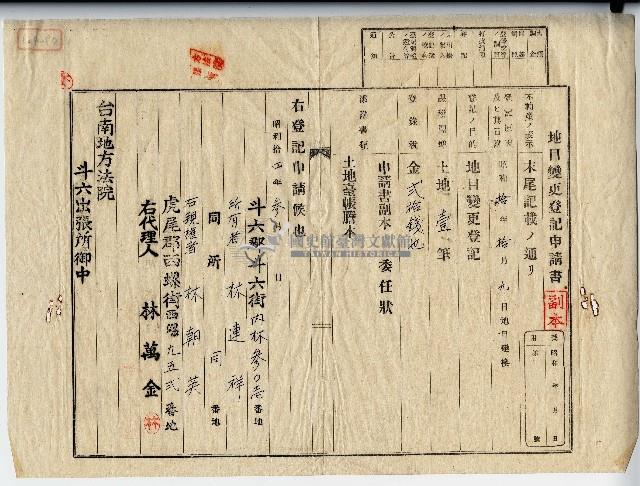 地目變更登記申請書
副本
昭和 年 月 日
號
不動產ノ表示 末尾記載ノ通リ
昭和 拾年 拾月 九日 地目變換
登記ノ目的 地目變更登記
土地 壹 筆
登錄稅 金 貳拾錢也
申請書副本 委任狀
土地臺帳謄本
右登記申請候也
昭和拾 年 參月 日
斗六郡斗六街內林參〇壱番地
所有者 林連祥
同所 同 番地
右親權者 林朝英
虎尾郡西螺街西螺九五弍番地
右代理人 林萬金
台南地方法院
斗六出張所御中
國史館臺灣文獻館
TAIWAN HISTORICA